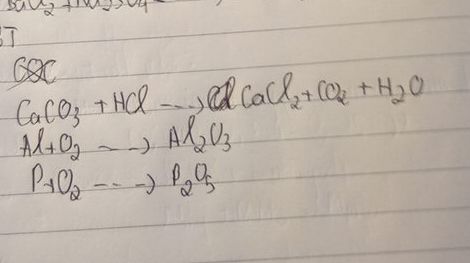 BaCl₂ + Na₂SO₄
BT
CaCO₃ + HCl ---> CaCl₂ + CO₂ + H₂O
Al + O₂ ---> Al₂O₃
P + O₂ ---> P₂O₅